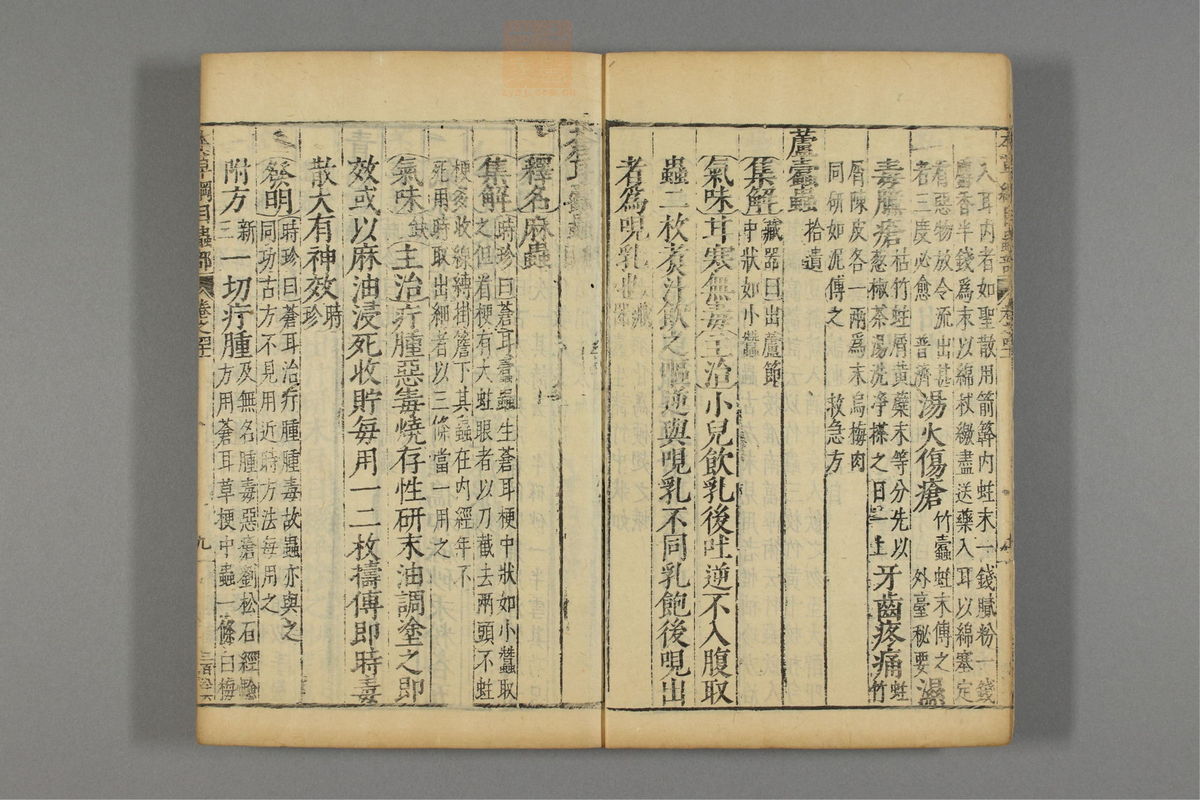 入耳內者如聖散用箭簳內蛀末一錢膩粉一錢
麝香半錢爲末以綿杖繳盡送藥入耳以綿塞定
有惡物放令流出甚
者三度必愈 普濟
湯火傷瘡
竹蠹蛀末傅之
外臺秘要
濕
毒臁瘡
枯竹蛀屑黃蘗末等分先以
葱椒茶湯洗净搽之日一上
牙齒疼痛
蛀竹
屑陳皮各一兩爲末烏梅肉
同研如泥傅之 救急方
蘆蠹蟲 拾遺
集解
藏器曰出蘆節
中狀如小蠶
氣味甘寒無毒主治小兒飲乳後吐逆不入腹取
蟲二枚煑汁飲之嘔逆與哯乳不同乳飽後哯出
者爲哯乳也 藏器
蟲
釋名麻蟲
集解
時珍曰蒼耳蠹蟲生蒼耳梗中狀如小蠶取
之但看梗有大蛀眼者以刀截去兩頭不蛀
梗多收線縛掛簷下其蟲在内經年不
死用時取出細者以三條當一用之
氣味缺主治疔腫惡毒燒存性研末油調塗之即
效或以麻油浸死收貯每用一二枚擣傅即時毒
散大有神效 時珍
發明
時珍曰蒼耳治疔腫腫毒故蟲亦與之
同功古方不見用近時方法每用之
附方 新三
一切疔腫
及無名腫毒惡瘡劉松石經驗
方用蒼耳草梗中蟲一條白梅
本草綱目蟲部
卷之四十
九